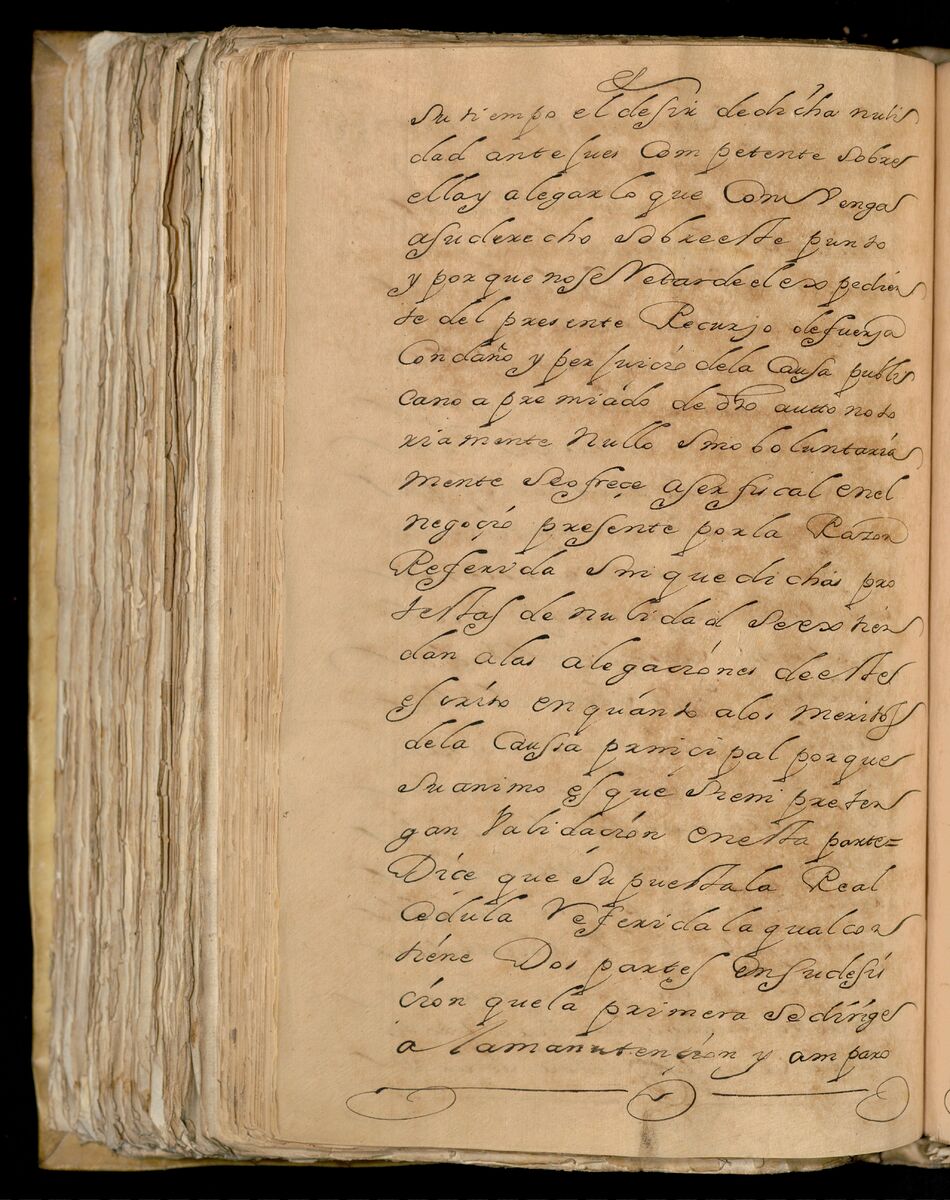 su tiempo el desir de dicha nuli
dad ante jues Competente sobre
ella y alegar lo que Comvenga
a su derecho sobre este punto
y por que no se Retarde el expedien
te del presente Recurso de fuersa
Con daño y perjuicio de la Causa publi
ca no apremiádo de dho autto noto
riamente Nullo sino boluntaria
mente se ofreçe a ser fiscal en el
negoçio presente por la Razon
Referida sin que dichas pro
testas de nulidad se extien
dan a las alegaciónes de este
escrito en quánto a los meritos
de la Caussa prinçipal porque
su animo es que siempre ten
gan Validaciòn en esta parte=
Dice que supuesta la Real
Cedula Referida la qual con
tiéne Dos partes en su desi
cion que la primera se dirige
a la manutençion y amparo